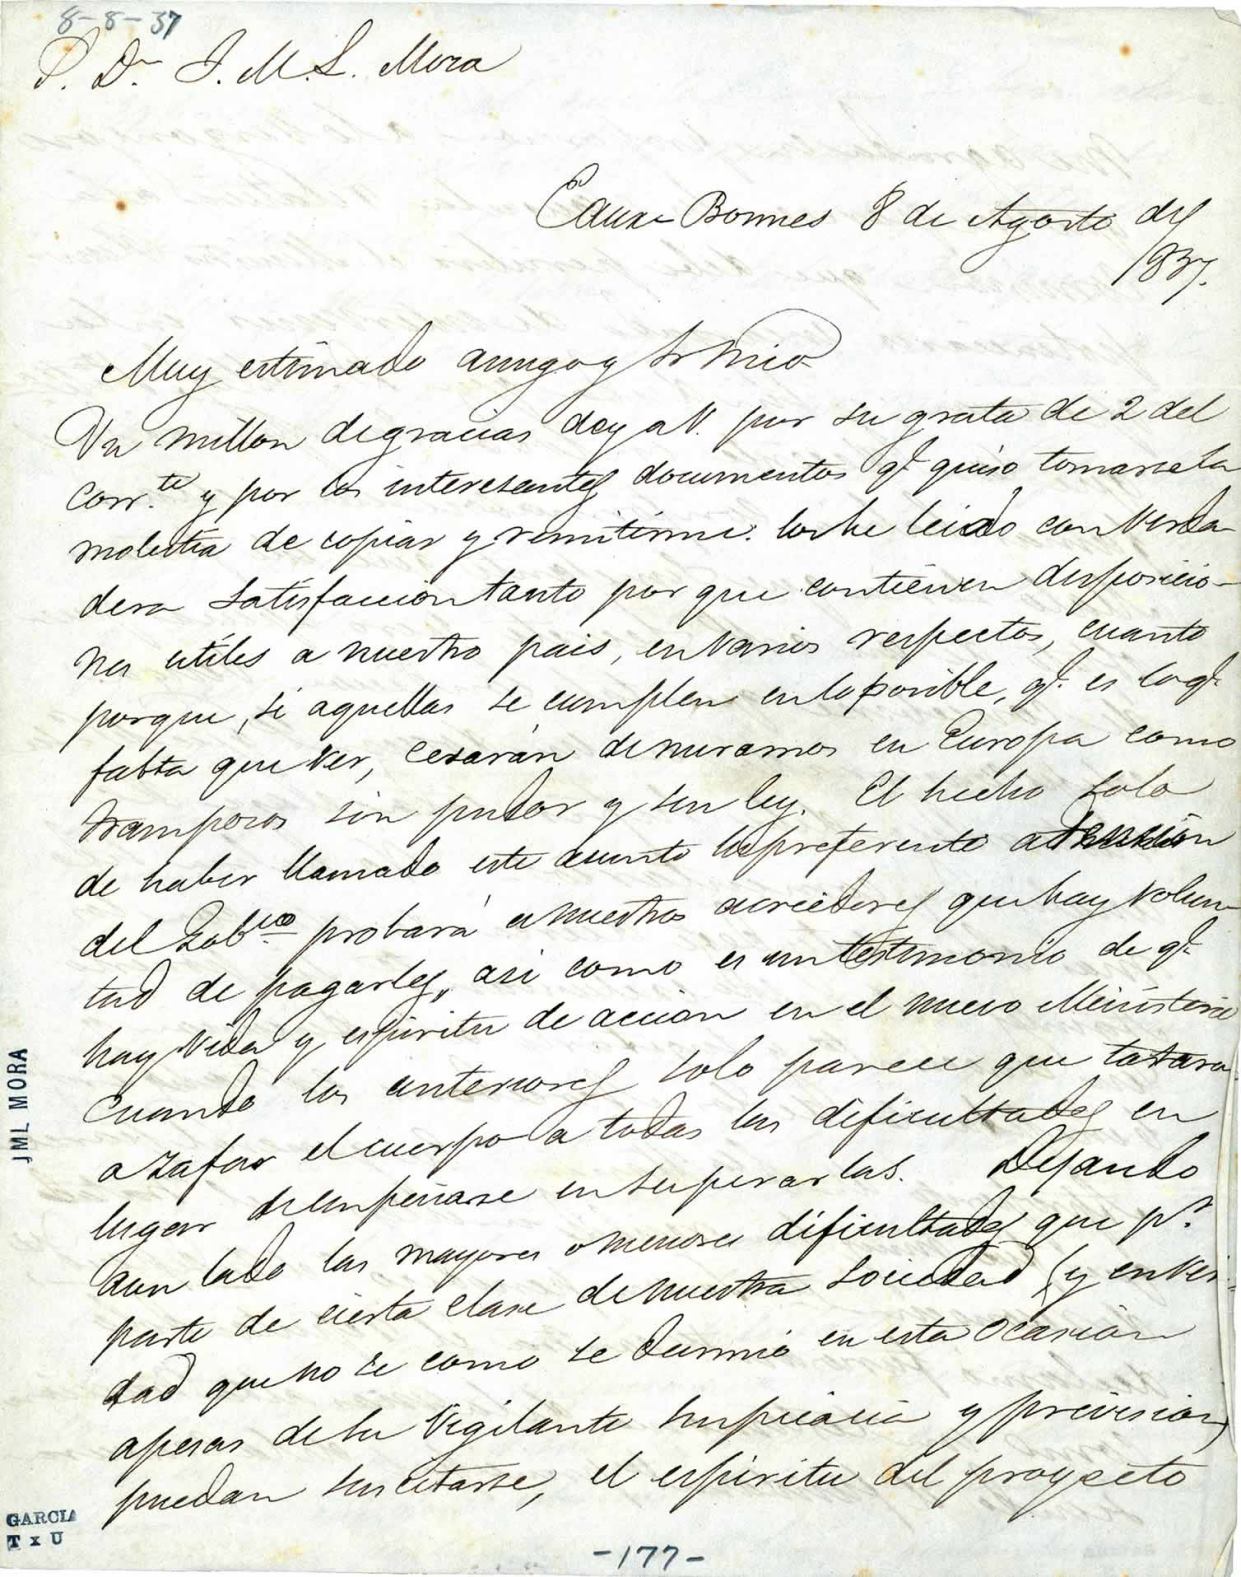 8-8-37
S. Dn. J. M. L. Mora
Eaux Bonnes 8 de Agosto del
1837.
Muy estimado amigo y Sr. mio
Un millon de gracias doy a V. por su grata de 2 del
corr.te y por los interesantes documentos q.e quiso tomarse la
molestia de copiar y remitirme. los he leido con verda
dera satisfaccion tanto por que contienen disposicio-
nes utiles a nuestro pais, en varios respectos, cuanto
porque, si aquellas se cumplen en lo posible, q.e es lo q.e
falta que ver, cesarán de mirarnos en Europa como
tramposos sin pudor y sin ley. El hecho solo
de haber llamado este asunto la preferente atencion
del Gob.no probará a nuestros acreedores que hay volun-
tad de pagarles, asi como es un testimonio de q.e
hay vida y espiritu de accion en el nuevo Ministerio
cuando los anteriores solo parece que trataron
a zafar el cuerpo a todas las dificultades en
lugar de empeñarse en superarlas. Dejando
a un lado las mayores o menores dificultades que p.r
parte de cierta clase de nuestra sociedad (y en ver-
dad que no se como se durmió en esta ocasion
apesar de su vigilante suspicacia y prevision)
puedan suscitarse, el espiritu del proyecto
JML MORA
GARCIA
T x U
-177-